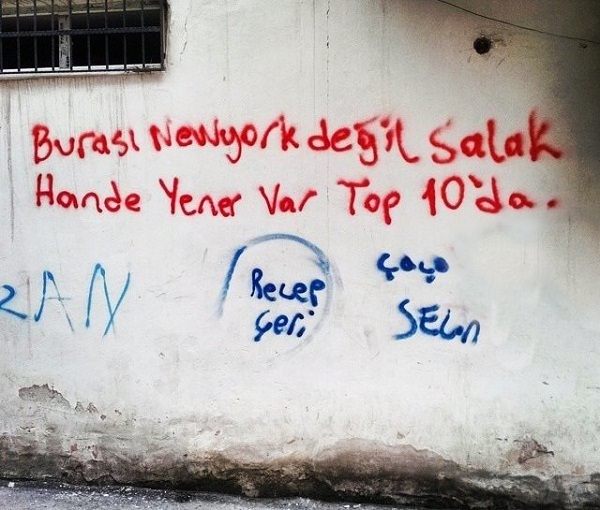 Burası Newyork değil Salak
Hande Yener Var Top 10'da.
ZAN
Recep
Çeri
ÇoÇo
SELn